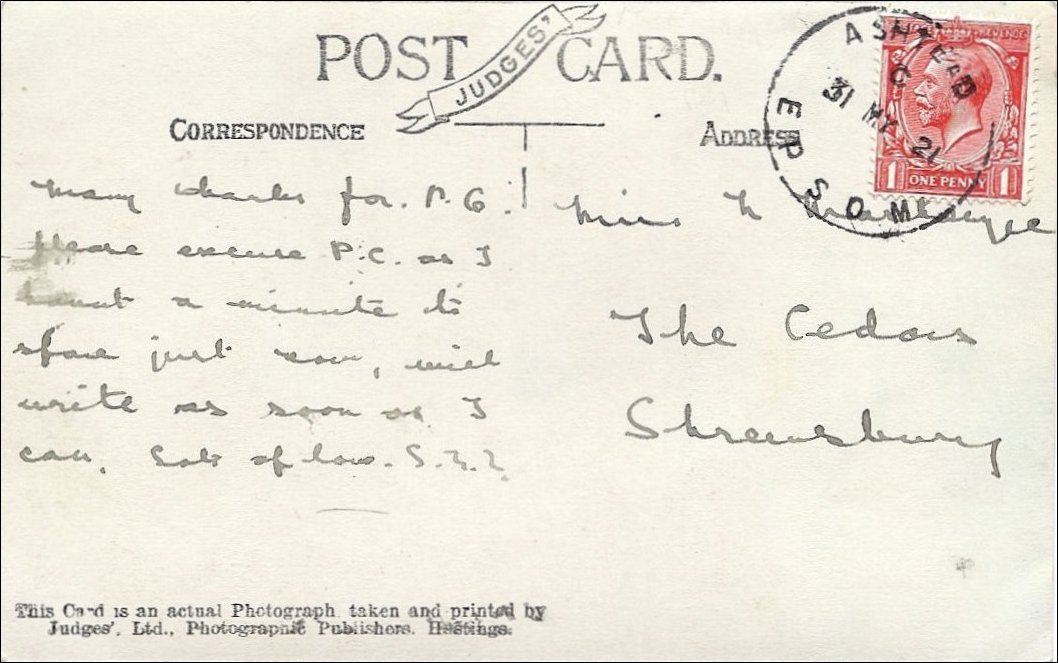 POST CARD.
JUDGES'
CORRESPONDENCE
ADDRESS
ASHTEAD
C
31 MY 21
EPSOM
REVENUE
1 ONE PENNY 1
Many thanks for P.G.
please excuse P.C. as I
havnt a minute to
spare just now, will
write as soon as I
can. Lots of love.
Miss
The Cedars
Shrewsbury
This Card is an actual Photograph taken and printed by
Judges', Ltd., Photographic Publishers. Hastings.